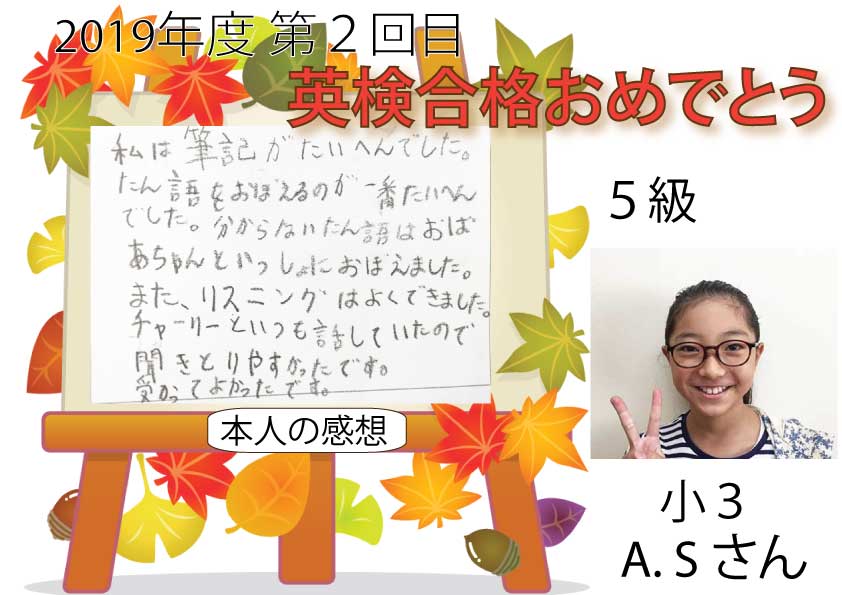 2019年度 第２回目
英検合格おめでとう
私は筆記がたいへんでした。
たん語をおぼえるのが一番たいへん
でした。分からないたん語はおば
あちゃんといっしょにおぼえました。
また、リスニングはよくできました。
チャーリーといつも話していたので
聞きとりやすかったです。
受かってよかったです。
本人の感想
５級
小３
A. S さん